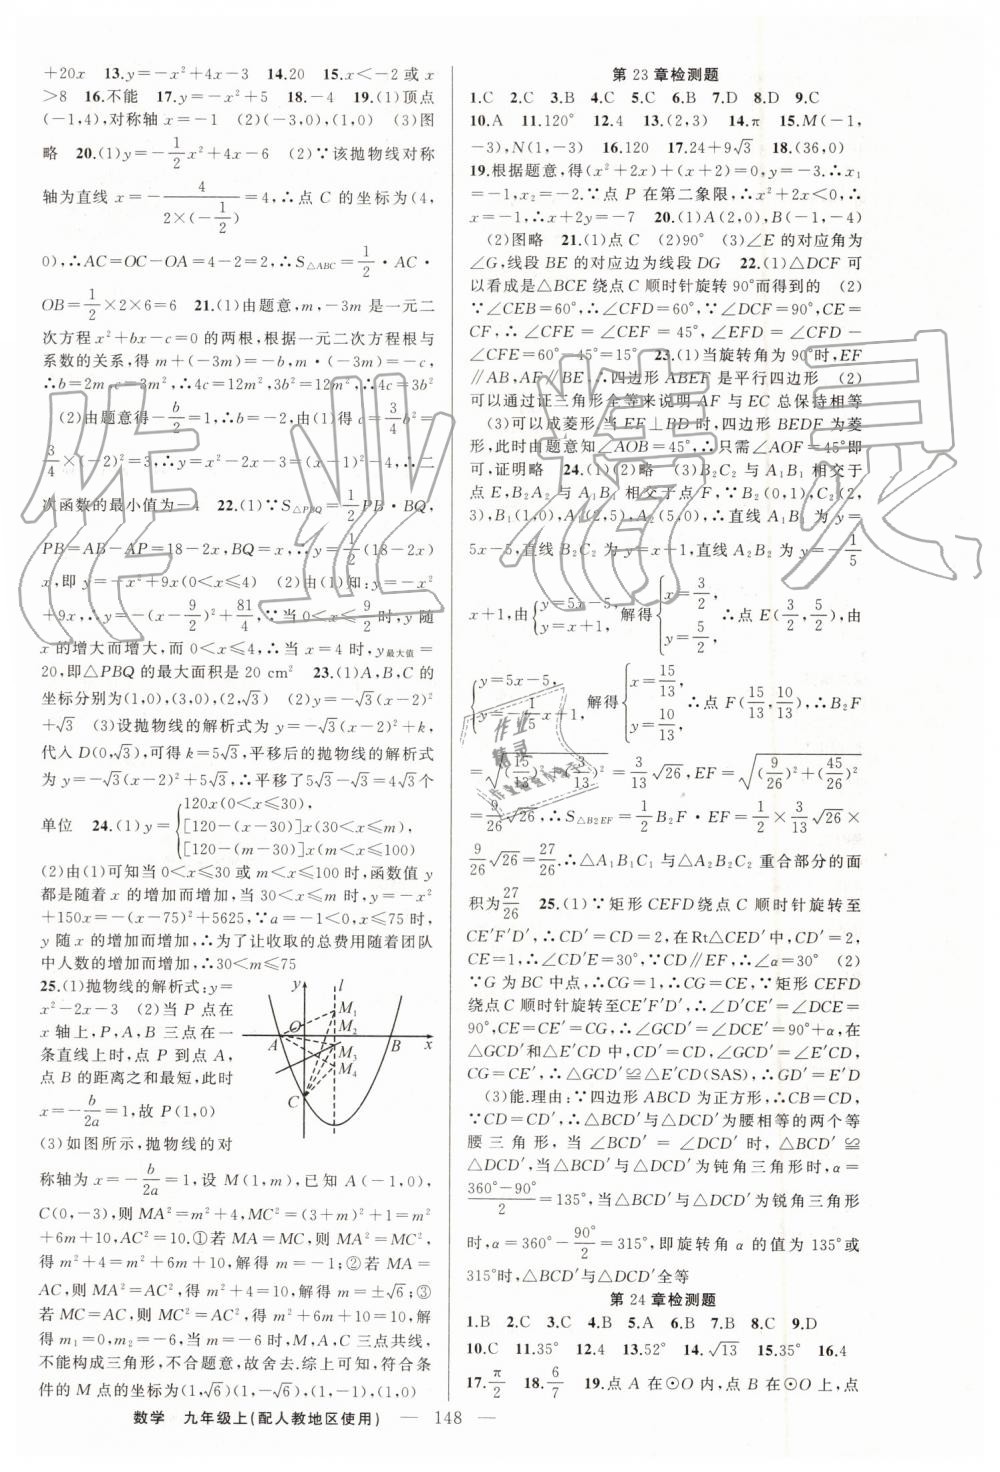 +20x　13.y=-x²+4x-3　14.20　15.x<-2或x
>8　16.不能　17.y=-x²+5　18.-4　19.(1)顶点
(-1,4),对称轴x=-1　(2)(-3,0),(1,0)　(3)图
略　20.(1)y=-1/2x²+4x-6　(2)∵该抛物线对称
轴为直线x=-4/(2×(-1/2))=4,∴点C的坐标为(4,
0),∴AC=OC-OA=4-2=2,∴S△ABC=1/2·AC·
OB=1/2×2×6=6　21.(1)由题意,m,-3m是一元二
次方程x²+bx-c=0的两根,根据一元二次方程根与
系数的关系,得m+(-3m)=-b,m·(-3m)=-c,
∴b=2m,c=3m²,∴4c=12m²,3b²=12m²,∴4c=3b²
(2)由题意得-b/2=1,∴b=-2,由(1)得c=3/4b²=
3/4×(-2)²=3,∴y=x²-2x-3=(x-1)²-4,∴二
次函数的最小值为-4　22.(1)∵S△PBQ=1/2PB·BQ,
PB=AB-AP=18-2x,BQ=x,∴y=1/2(18-2x)
x,即y=-x²+9x(0<x≤4)　(2)由(1)知:y=-x²
+9x,∴y=-(x-9/2)²+81/4,∵当0<x≤9/2时,y随
x的增大而增大,而0<x≤4,∴当x=4时,y最大值=
20,即△PBQ的最大面积是20 cm²　23.(1)A,B,C的
坐标分别为(1,0),(3,0),(2,√3)　(2)y=-√3(x-2)²
+√3　(3)设抛物线的解析式为y=-√3(x-2)²+k,
代入D(0,√3),可得k=5√3,平移后的抛物线的解析式
为y=-√3(x-2)²+5√3,∴平移了5√3-√3=4√3个
单位　24.(1)y={120x(0<x≤30),
[120-(x-30)]x(30<x≤m),
[120-(m-30)]x(m<x≤100)
(2)由(1)可知当0<x≤30或m<x≤100时,函数值y
都是随着x的增加而增加,当30<x≤m时,y=-x²
+150x=-(x-75)²+5625,∵a=-1<0,∴x≤75时,
y随x的增加而增加,∴为了让收取的总费用随着团队
中人数的增加而增加,∴30<m≤75
25.(1)抛物线的解析式:y=
x²-2x-3　(2)当P点在
x轴上,P,A,B三点在一
条直线上时,点P到点A,
点B的距离之和最短,此时
x=-b/2a=1,故P(1,0)
(3)如图所示,抛物线的对
y　l　M₁　M₂　M₃　M₄　O　A　B　x　C
称轴为x=-b/2a=1,设M(1,m),已知A(-1,0),
C(0,-3),则MA²=m²+4,MC²=(3+m)²+1=m²
+6m+10,AC²=10.①若MA=MC,则MA²=MC²,
得m²+4=m²+6m+10,解得m=-1;②若MA=
AC,则MA²=AC²,得m²+4=10,解得m=±√6;③
若MC=AC,则MC²=AC²,得m²+6m+10=10,解
得m₁=0,m₂=-6,当m=-6时,M,A,C三点共线,
不能构成三角形,不合题意,故舍去.综上可知,符合条
件的M点的坐标为(1,√6)(1,-√6)(1,-1),(1,0)
第23章检测题
1.C　2.C　3.B　4.C　5.C　6.B　7.D　8.D　9.C
10.A　11.120°　12.4　13.(2,3)　14.π　15.M(-1,
-3),N(1,-3)　16.120　17.24+9√3　18.(36,0)
19.根据题意,得(x²+2x)+(x+2)=0,y=-3.∴x₁
=-1,x₂=-2.∵点P在第二象限,∴x²+2x<0,∴
x=-1,∴x+2y=-7　20.(1)A(2,0),B(-1,-4)
(2)图略　21.(1)点C　(2)90°　(3)∠E的对应角为
∠G,线段BE的对应边为线段DG　22.(1)△DCF可
以看成是△BCE绕点C顺时针旋转90°而得到的　(2)
∵∠CEB=60°,∴∠CFD=60°,∵∠DCF=90°,CE=
CF,∴∠CFE=∠CEF=45°,∠EFD=∠CFD-
∠CFE=60°-45°=15°　23.(1)当旋转角为90°时,EF
∥AB,AF∥BE,∴四边形ABEF是平行四边形　(2)
可以通过证三角形全等来说明AF与EC总保持相等
(3)可以成菱形,当EF⊥BD时,四边形BEDF为菱
形,此时由题意知∠AOB=45°,∴只需∠AOF=45°即
可,证明略　24.(1)(2)略　(3)B₂C₂与A₁B₁相交于
点E,B₂A₂与A₁B₁相交于点F,∵B₂(0,1),C₂(2,
3),B₁(1,0),A₁(2,5),A₂(5,0),∴直线A₁B₁为y=
5x-5,直线B₂C₂为y=x+1,直线A₂B₂为y=-1/5
x+1,由{y=5x-5,y=x+1,解得{x=3/2,y=5/2,∴点E(3/2,5/2),由
{y=5x-5,y=-1/5x+1,解得{x=15/13,y=10/13,∴点F(15/13,10/13),∴B₂F
=√((15/13)²+(3/13)²)=3/13√26,EF=√((9/26)²+(45/26)²)=
9/26√26,∴S△B2EF=1/2B₂F·EF=1/2×3/13√26×
9/26√26=27/26.∴△A₁B₁C₁与△A₂B₂C₂重合部分的面
积为27/26　25.(1)∵矩形CEFD绕点C顺时针旋转至
CE′F′D′,∴CD′=CD=2,在Rt△CED′中,CD′=2,
CE=1,∴∠CD′E=30°,∵CD∥EF,∴∠α=30°　(2)
∵G为BC中点,∴CG=1,∴CG=CE,∵矩形CEFD
绕点C顺时针旋转至CE′F′D′,∴∠D′CE′=∠DCE=
90°,CE=CE′=CG,∴∠GCD′=∠DCE′=90°+α,在
△GCD′和△E′CD中,CD′=CD,∠GCD′=∠E′CD,
CG=CE′,∴△GCD′≌△E′CD(SAS),∴GD′=E′D
(3)能.理由:∵四边形ABCD为正方形,∴CB=CD,
∵CD=CD′,∴△BCD′与△DCD′为腰相等的两个等
腰三角形,当∠BCD′=∠DCD′时,△BCD′≌
△DCD′,当△BCD′与△DCD′为钝角三角形时,α=
(360°-90°)/2=135°,当△BCD′与△DCD′为锐角三角形
时,α=360°-90°/2=315°,即旋转角α的值为135°或
315°时,△BCD′与△DCD′全等
第24章检测题
1.B　2.C　3.C　4.B　5.A　6.B　7.C　8.B　9.D
10.C　11.35°　12.4　13.52°　14.√13　15.35°　16.4
17.π/2　18.6/7　19.点A在⊙O内,点B在⊙O上,点
数学　九年级上(配人教地区使用)　—　148　—
作业精灵